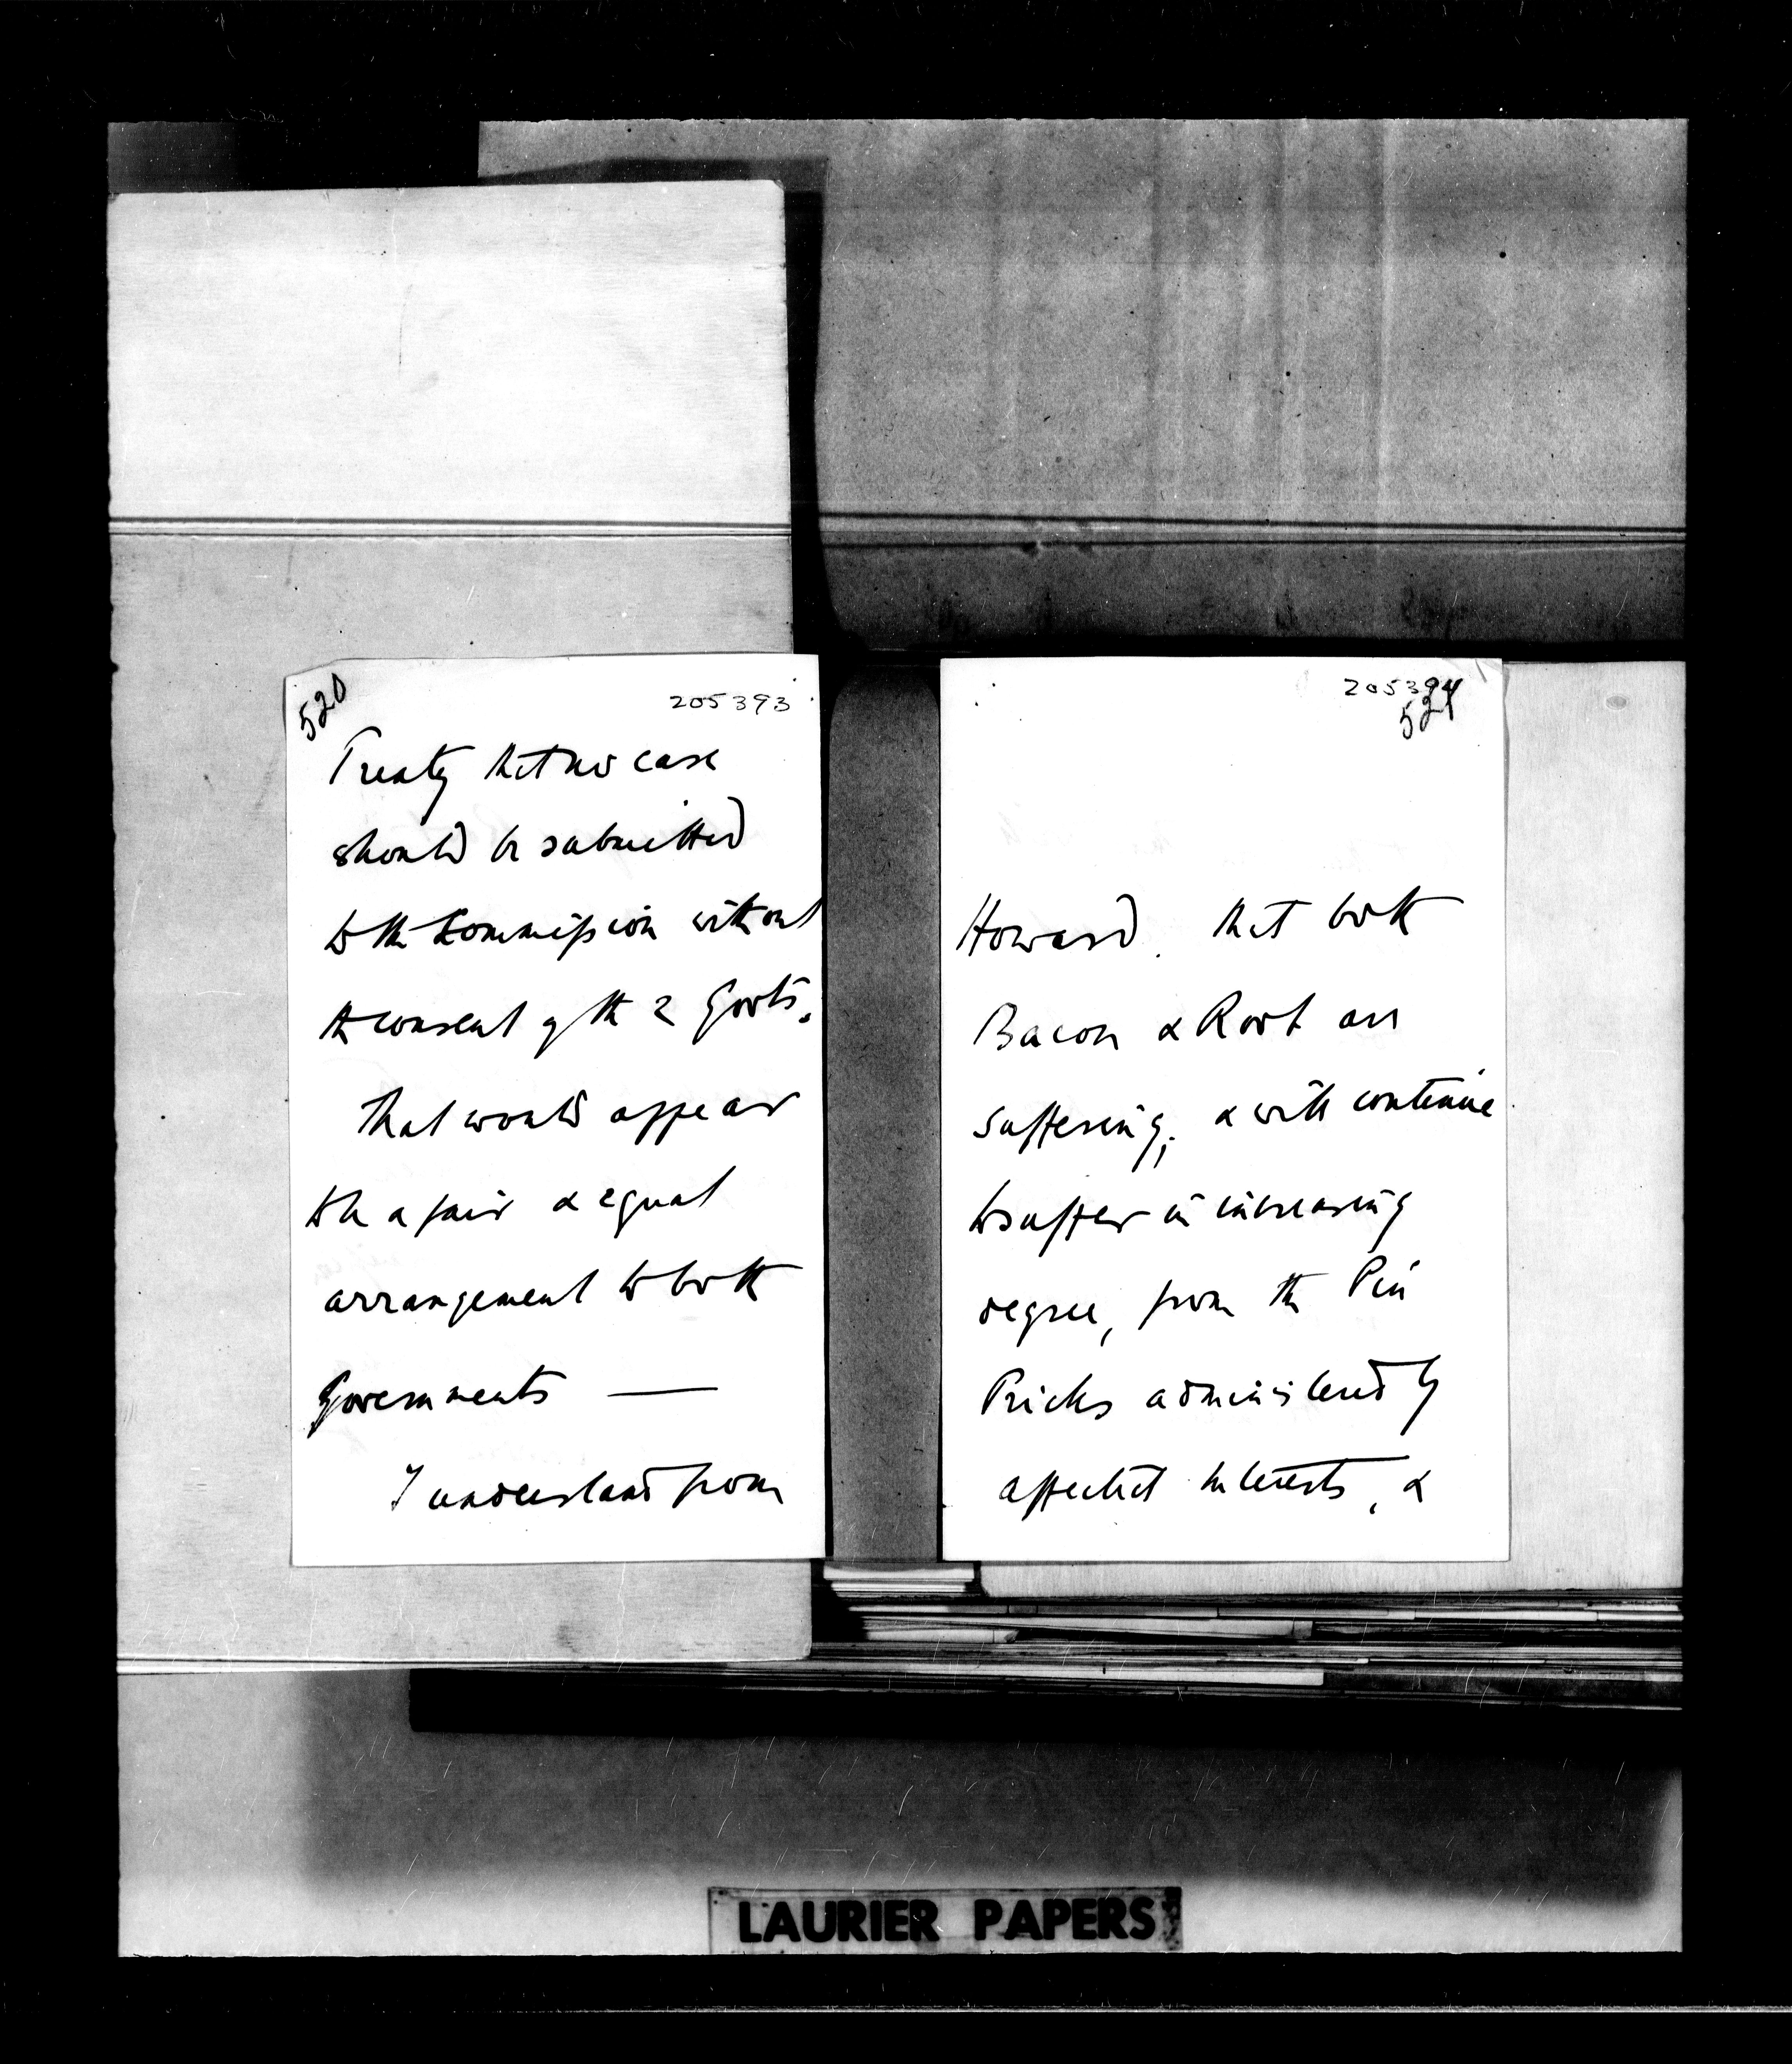 520
205393
Treaty that no case
should be submitted
to the Commission without
the consent of the 2 Govts.
That would appear
to be a fair & equal
arrangement to both
Governments —
I understand from
205394
521
Howard. that both
Bacon & Root are
suffering, & will continue
to suffer in increasing
degree, from the Pin
Pricks administered by
affected interests, &
LAURIER PAPERS